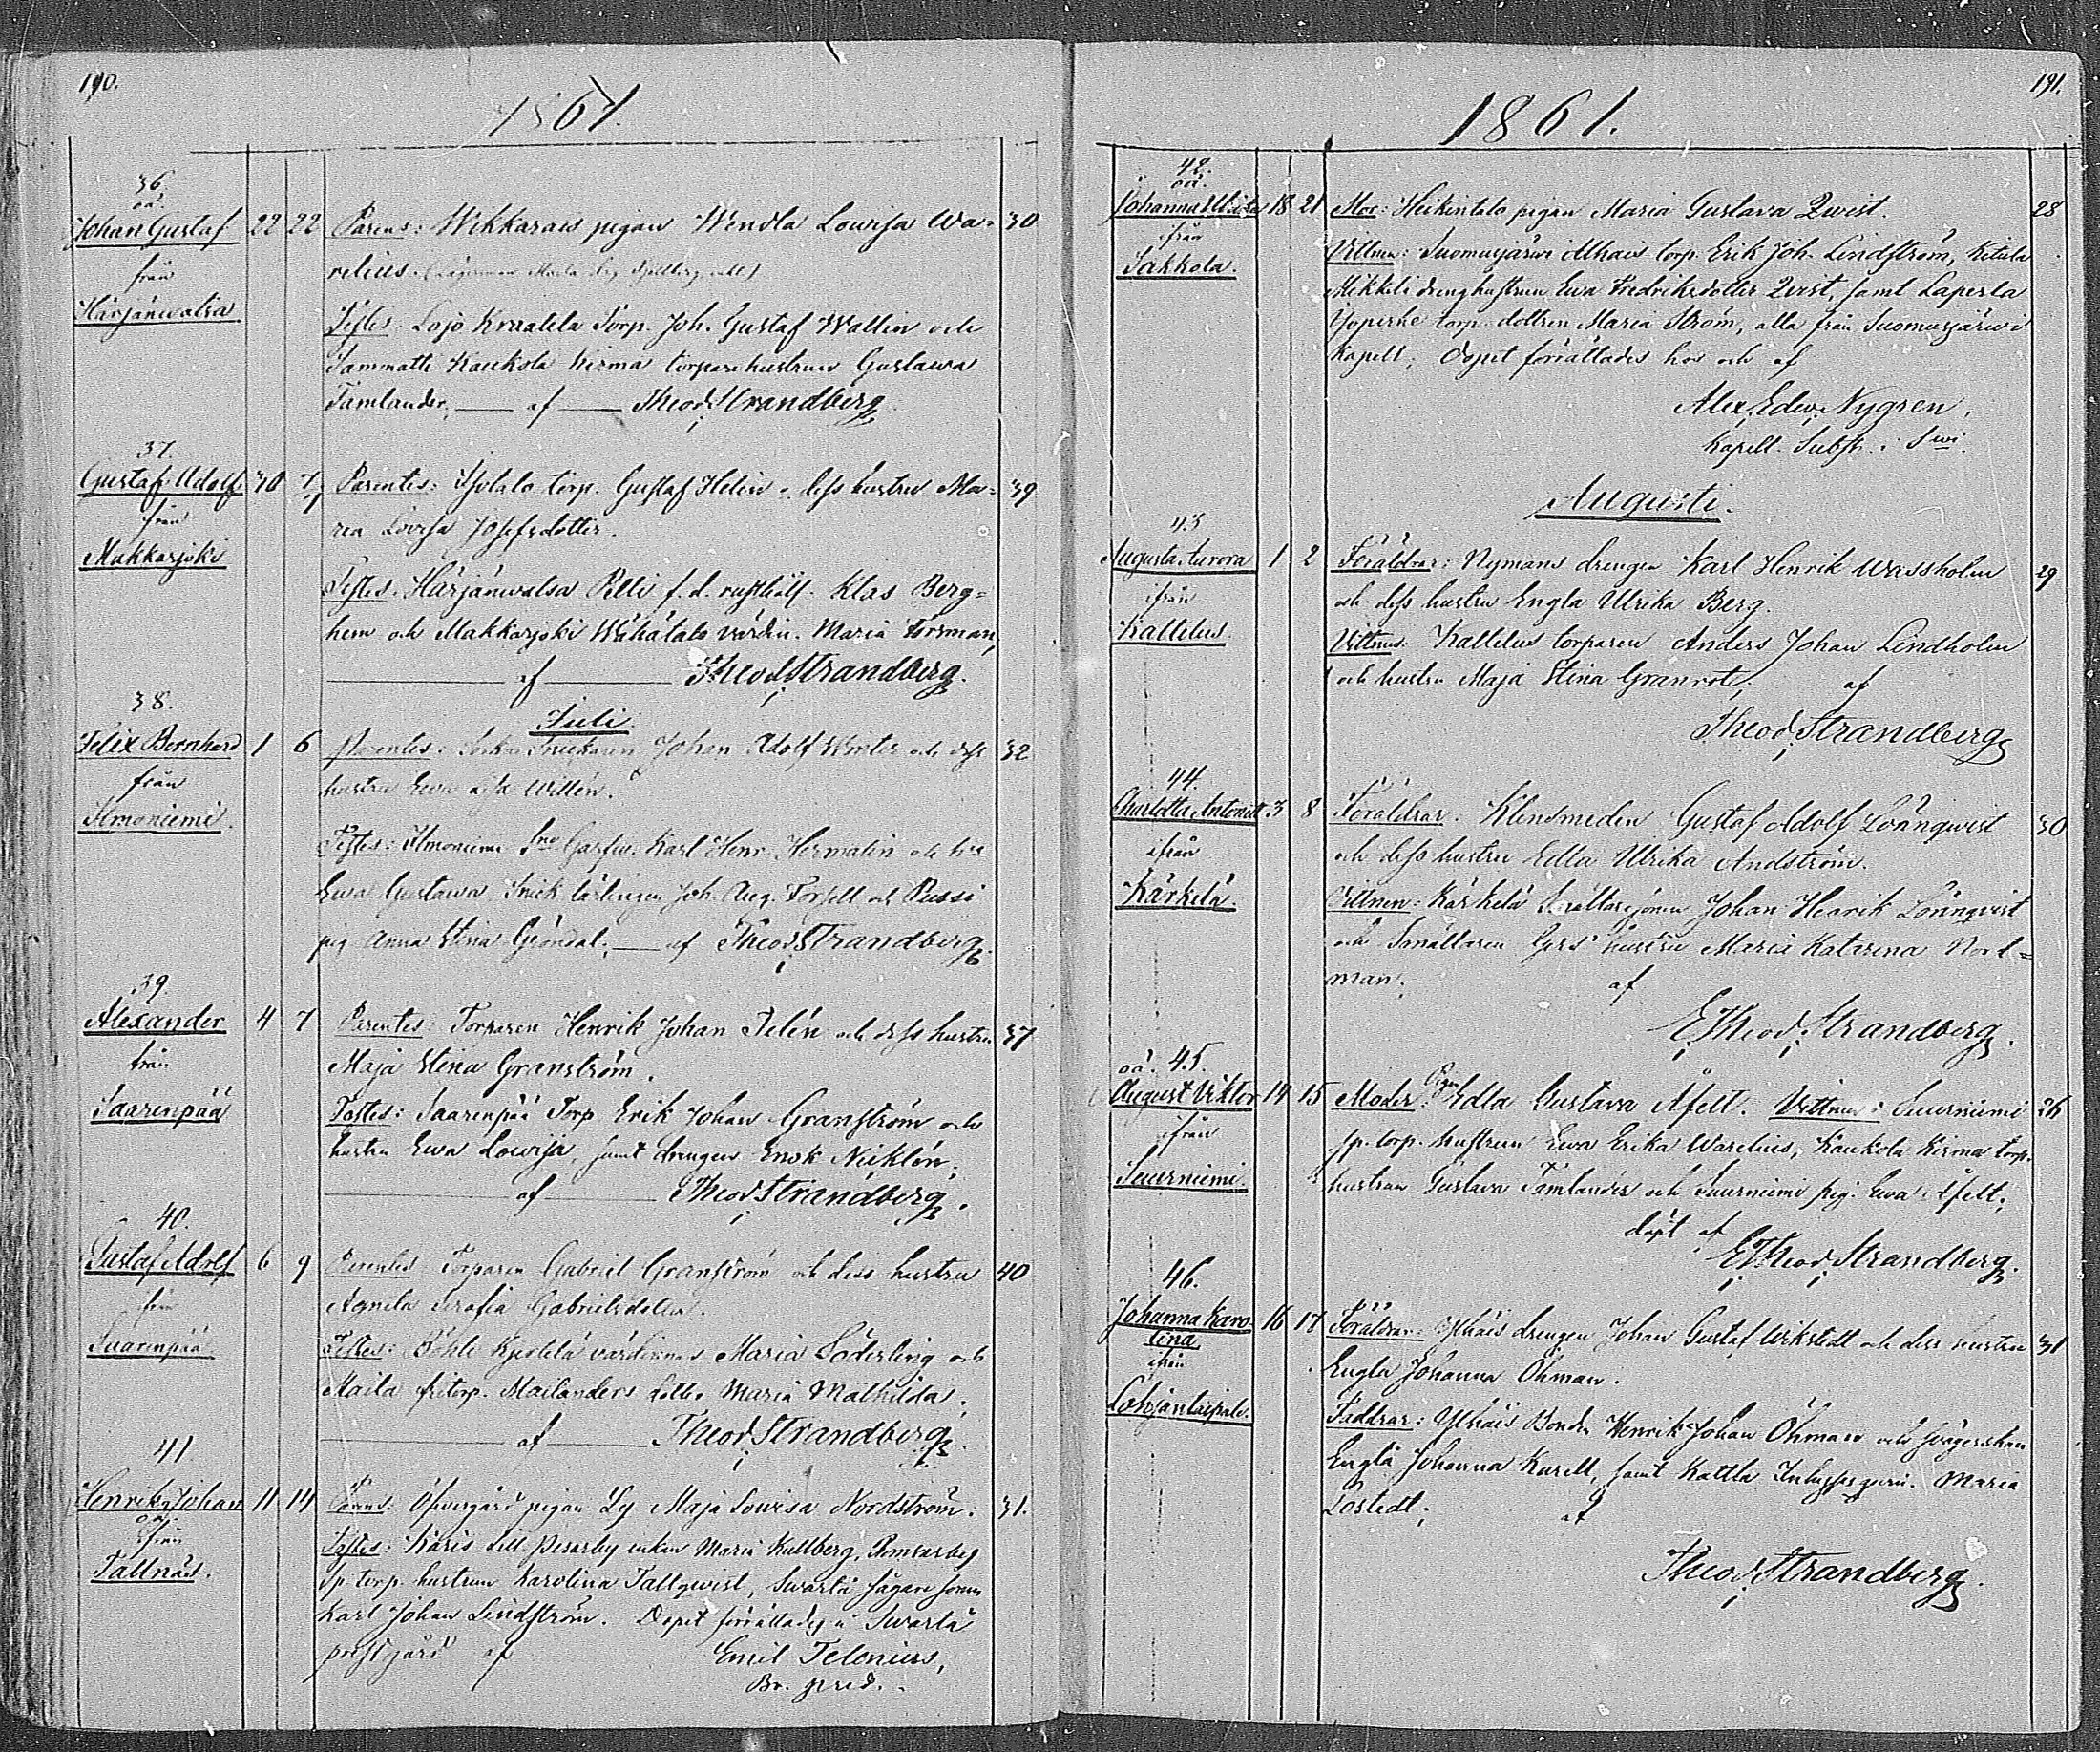 190.
1861.
36.
oä.
Johan Gustaf 22 22 Parens: Wikkaraus pigan Wendla Lowisa Wa= 30
från
relius.
Härjänwatsa
Testes: Lojo Kraatila Torp. Joh. Gustaf Wallin och
Sammatti Kaukola Kirma torpare hustrun Gustawa
Tamlander, — af — Theod. Strandberg
37.
Gustaf Adolf 30 7/7 Parentes: torp. Gustaf Helin o. dess hustru Ma= 39
från
ria Lovisa Josefsdotter.
Makkarjoki
Testes: Härjänwatsa Pelli f. d. rusthåll. Klas Berg=
hem och Makkarjoki Wähätalo värdin. Maria Forsman,
af Theod. Strandberg.
38.
Juli.
Felix Bernhard 1 6 Parentes: Snickaren Johan Adolf Winter och dess 32
från
hustru Ewa Lisa Willén.
Ilmoniemi.
Testes: Ilmoniemi Karl Henr. Hermalin och h:u
Ewa Gustawa, Snick. lärlingen Joh. Aug. Forsell och Pussi
pig. Anna Stina Gröndal; — af Theod. Strandberg
39.
Alexander 4 7 Parentes: Torparen Henrik Johan Telén och dess hustru 37
från
Maja Stina Granström.
Saarenpää
Testes: Saarenpää Torp Erik Johan Granström och
hustru Ewa Lowisa, samt drengen Enok Nicklén;
af Theod. Strandberg.
40.
Gustaf Adolf 6 9 Parentes: Torparen Gabriel Granström och dess hustru 40
från
Agneta Serafia Gabrielsdotter.
Saarenpää
Testes: Pöhli Kjertilä värdinnas Maria Söderling och
Maila fritorp. Mailanders dotter Maria Mathilda;
af Theod. Strandberg
41.
Henrik Johan 11 14 Parens: Öfvergård pigan Maja Lowisa Nordström. 31.
oä.
från
Testes: Karis Lill enkan Maria Kullberg,
Tallnäs.
Sp. torp. hustrun Karolina Tallqwist, Swartå
Karl Johan Lindström. Dopet förrättades i Swartå
prestgård af Emil Telenius,
Br. pred.
191.
1861.
42.
oä.
Johanna 18 21 Mor: Heikintalo pigan Maria Gustava Qwist. 28
ifrån
Vittnen: Suomusjärwi torp. Erik Joh. Lindström, Kitula
Sakkola.
Mikkeli drenghustrun Ewa Fredriksdotter Qvist, samt Laperla
torp. dottren Maria Ström, alla från Suomusjärwi
Kapell; dopet förrättades hos och af
Alex. Edw. Nygren,
Kapell. Subst. i Swi.
Augusti.
43
Augusta Aurora 1 2 Föräldrar: Nymans drengen Karl Henrik Wassholm 29
ifrån
och dess hustru Engla Ulrika Berg.
Kattelus
Vittnen: Kattelus torparen Anders Johan Lindholm
och hustru Maja Stina Granrot; af
Theod. Strandberg
44.
Charlotta Antonett 3 8 Föräldrar: Klensmeden Gustaf Adolf Lönnqwist 30
ifrån
och dess hustru Edla Ulrika Andström.
Kärkelä.
Vittnen: Kärkelä Smältaresonen Johan Henrik Lönnqvist
och Smältaren Grs' hustru Maria Katarina Nord=
man; af
E. Theod. Strandberg.
oä. 45.
August Viktor 14 15 Moder: Pigan Edla Gustava Åfelt. Vittnen: Suurniemi 26
ifrån
sp. torp. hustrun Ewa Erika Warelius, Kaukola Kirma torp.
Suurniemi.
hustrun Gustava Tamlander och Suurniemi pig. Ewa Åfelt;
döpt af
E. Theod. Strandberg.
46.
Johanna Karo= 16 17 Föräldrar: Ylhäis drengen Johan Gustaf Wikstedt och dess hustru 31
lina
Engla Johanna Öhman.
ifrån
Lohjantaipale.
Faddrar: Ylhäis Bonden Henrik Johan Öhman och Svägerskan
Engla Johanna Karell, samt Kattla Maria
Lostedt; af
Theod. Strandberg.